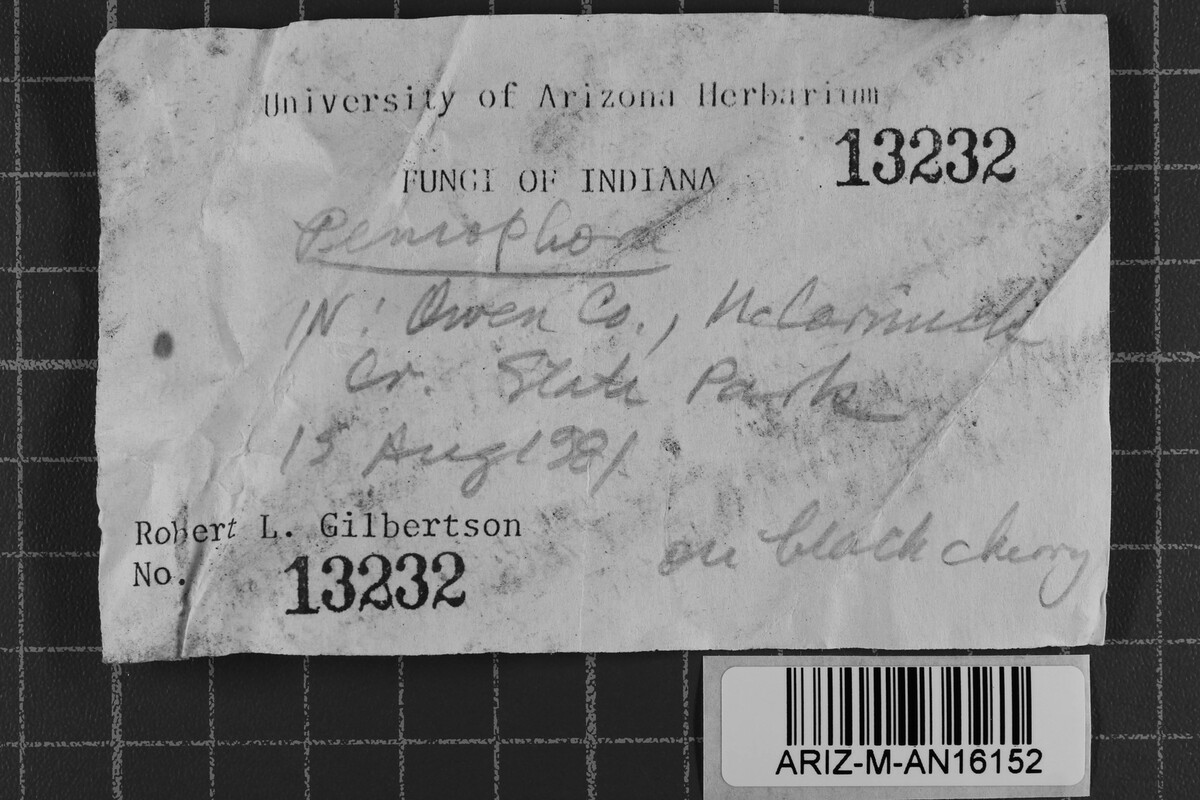 University of Arizona Herbarium
13232
FUNGI OF INDIANA
Peniophora
IN: Owen Co., McCormicks
Cr. State Park
15 Aug 1981
Robert L. Gilbertson
No. 13232
on black cherry
ARIZ-M-AN16152